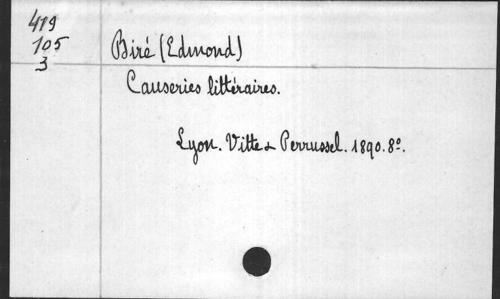 419
105
3
Biré (Edmond)
Causeries littéraires.
Lyon. Vitte & Perrussel. 1890. 8º.